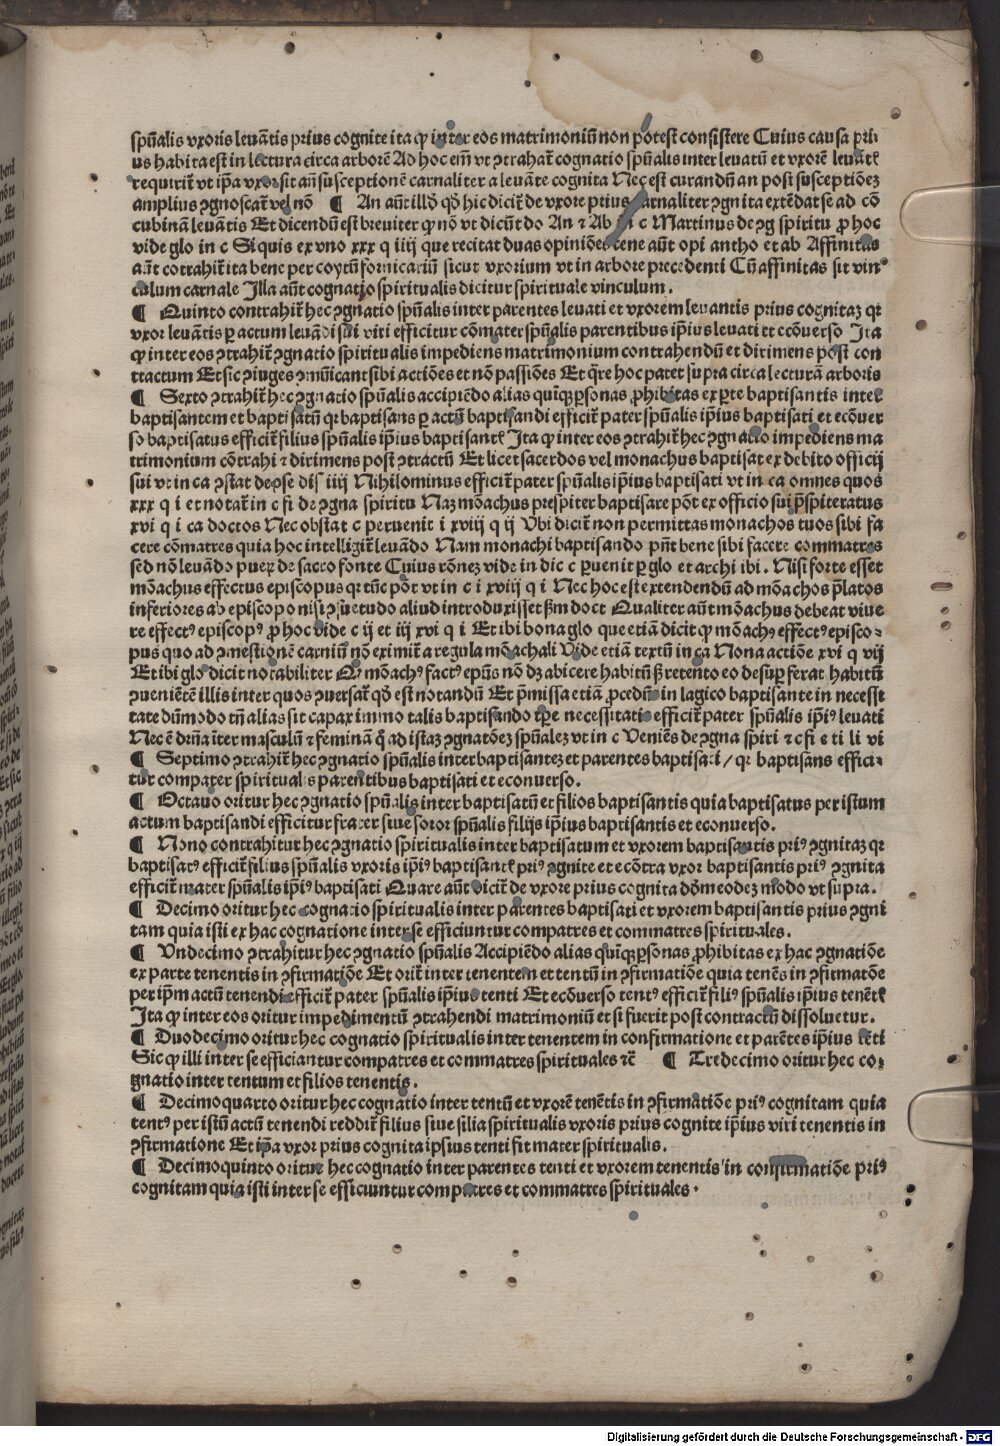 spũalis vxoris leuãtis prius cognite ita ꝙ inter eos matrimoniũ non potest consistere Cuius causa pri⸗
us habita est in lectura circa arborẽ Ad hoc em̃ vt ꝯtrahat̃ cognatio spũalis inter leuatũ et vxorẽ leuãtꝭ
requirit̃ vt ip̃a vxor sit añ susceptionẽ carnaliter a leuãte cognita Nec est curandũ an post susceptiõeꝫ
amplius ꝯgnoscat̃ vel nõ ¶ An aũt illđ qđ hic dicit̃ de vxore prius carnaliter ꝯgnita extẽdat se ad cõ
cubinã leuãtis Et dicendũ est breuiter ꝙ nõ vt dicũt do An ⁊ Ab in c Martinus de ꝯg spiritu ꝓ hoc
vide glo in c Si quis ex vno xxx q iiij que recitat duas opiniões tene aũt opi antho et ab Affinitas
aũt cotrahit̃ ita bene per coytũ fornicariũ sicut vxorium vt in arbore precedenti Cũ affinitas sit vin⸗
culum carnale Illa aũt cognatio spiritualis dicitur spirituale vinculum .
¶ Quinto contrahit̃ hec ꝯgnatio spũalis inter parentes leuati et vxorem leuantis prius cognitaꝫ qꝛ
vxor leuãtis ꝑ actum leuãdi sui viri efficitur cõmater spũalis parentibus ip̃ius leuati et ecõuerso Ita
ꝙ inter eos ꝯtrahit̃ ꝯgnatio spiritualis impediens matrimonium contrahendũ et dirimens post con
tractum Et sic ꝯiuges ꝯmũicant sibi actiões et nõ passiões Et qr̃e hoc patet supra circa lecturã arboris
¶ Sexto ꝯtrahit̃ hec ꝯgnatio spũalis accipiẽdo alias quinqꝫ psonas ꝓhibitas ex ꝑte baptisantis inteꝭ
baptisantem et baptisatũ qꝛ baptisans ꝑ actũ baptisandi efficit̃ pater spũalis ip̃ius baptisati et ecõuer
so baptisatus efficit̃ filius spũalis ip̃ius baptisantꝭ Ita ꝙ inter eos ꝯtrahit̃ hec ꝯgnatio impediens ma
trimonium cõtrahi ⁊ dirimens post ꝯtractũ Et licet sacerdos vel monachus baptisat ex debito officij
sui vt in ca ꝯstat de ꝯse dis̃ iiij Nihilominus efficit̃ pater spũalis ip̃ius baptisati vt in ca omnes quos
xxx q i et notat̃ in c fi de ꝯgna spiritu Naꝫ mõachus prespiter baptisare põt ex officio sui p̃spiteratus
xvi q i ca doctos Nec obstat c peruenit i xviij q ij Vbi dicit̃ non permittas monachos tuos sibi fa
cere cõmatres quia hoc intelligit̃ leuãdo Nam monachi baptisando pñt bene sibi facere commatres
sed nõ leuãdo pueꝝ de sacro fonte Cuius rõneꝫ vide in dic c ꝑuenit ꝑ glo et archi ibi . Nisi forte esset
mõachus effectus episcopus qꝛ tũc põt vt in c i xviij q i Nec hoc est extendendũ ad mõachos p̃latos
inferiores ab episcopo nisi ꝯsuetudo aliud introduxisset ẜm doct Qualiter aũt mõachus debeat viue
re effectꝰ episcopꝰ ꝓ hoc vide c ij et iij xvi q i Et ibi bona glo que etiã dicit ꝙ mõachꝰ effectꝰ episco⸗
pus quo ad ꝯmestionẽ carniũ nõ eximit̃ a regula mõachali Vide etiã textũ in ca Nona actiõe xvi q vij
Et ibi glo dicit notabiliter Q mõachꝰ factꝰ ep̃us nõ dꝫ abicere habitũ ꝫ retento eo desup ferat habitũ
ꝯueniẽtẽ illis inter quos ꝯuersat̃ qđ est notandũ Et p̃missa etiã ꝓcedũt in laẏco baptisante in necessi
tate dũmodo tñ alias sit capax immo talis baptisando tꝑe necessitatis efficit̃ pater spũalis ip̃iꝰ leuati
Nec ẽ dr̃na ĩter masculũ ⁊ feminã q̃ ad istaꝫ ꝯgnatõeꝫ spũaleꝫ vt in c Veniẽs de ꝯgna spiri ⁊ c fi e ti li vi
¶ Septimo ꝯtrahit̃ hec ꝯgnatio spũalis inter baptisanteꝫ et parentes baptisati / qꝛ baptisans effici⸗
tur compater spiritualis parentibus baptisati et econuerso .
¶ Octauo oritur hec ꝯgnatio spũalis inter baptisatũ et filios baptisantis quia baptisatus per istum
actum baptisandi efficitur frater siue soror spũalis filijs ip̃ius baptisantis et econuerso .
¶ Nono contrahitur hec ꝯgnatio spiritualis inter baptisatum et vxorem baptisantis priꝰ ꝯgnitaꝫ qꝛ
baptisatꝰ efficit̃ filius spũalis vxoris ip̃iꝰ baptisantꝭ priꝰ ꝯgnite et e cõtra vxor baptisantis priꝰ ꝯgnita
efficit̃ mater spũalis ip̃iꝰ baptisati Quare aũt dicit̃ de vxore prius cognita dõm eodeꝫ modo vt supra .
¶ Decimo oritur hec cognatio spiritualis inter parentes baptisati et vxorem baptisantis prius ꝯgni
tam quia isti ex hac cognatione inter se efficiuntur compatres et commatres spirituales .
¶ Vndecimo ꝯtrahitur hec ꝯgnatio spũalis Accipiẽdo alias quĩqꝫ psonas ꝓhibitas ex hac ꝯgnatiõe
ex parte tenentis in ꝯfirmatiõe Et orit̃ inter tenentem et tentũ in ꝯfirmatiõe quia tenẽs in ꝯfirmatõe
per ip̃m actũ tenendi efficit̃ pater spũalis ip̃ius tenti Et ecõuerso tentꝰ efficit̃ filiꝰ spũalis ip̃ius tenẽtꝭ
Ita ꝙ inter eos oritur impedimentũ ꝯtrahendi matrimoniũ et si fuerit post contractũ dissoluetur .
¶ Duodecimo oritur hec cognatio spiritualis inter tenentem in confirmatione et parẽtes ip̃ius tẽti
Sic ꝙ illi inter se efficiantur compatres et commatres spirituales ⁊c̃ ¶ Tredecimo oritur hec co⸗
gnatio inter tentum et filios tenentis .
¶ Decimoquarto oritur hec cognatio inter tentũ et vxorẽ tenẽtis in ꝯfirmatiõe priꝰ cognitam quia
tentꝰ per istũ actũ tenendi reddit̃ filius siue filia spiritualis vxoris prius cognite ip̃ius viri tenentis in
ꝯfirmatione Et ip̃a vxor prius cognita ipsius tenti fit mater spiritualis .
¶ Decimoquinto oritur hec cognatio inter parentes tenti et vxorem tenentis in confirmatiõe priꝰ
cognitam quia isti inter se efficiuntur compatres et commatres spirituales .
Digitalisierung gefördert durch die Deutsche Forschungsgemeinschaft - DFG